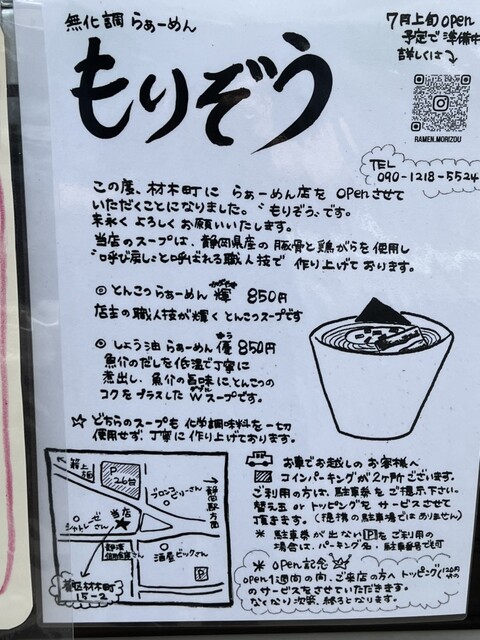 無化調 らぁーめん
もりぞう
7月上旬 open
予定で準備中
詳しくは
RAMEN.MORIZOU
TEL
090-1218-5524
この度、材木町に らぁーめん店を openさせて
いただくことになりました。"もりぞう"です。
末永くよろしくお願いいたします。
当店のスープは、静岡県産の豚骨と鶏がらを使用し
"呼び戻し"と呼ばれる職人技で作り上げております。
◎とんこつらぁーめん 輝 850円
店主の職人技が輝くとんこつスープです
◎しょう油らぁーめん 優 850円
魚介のだしを低温で丁寧に
煮出し、魚介の旨味にとんこつの
コクをプラスしたWスープです。
☆どちらのスープも化学調味料を一切
使用せず、丁寧に作り上げております。
お車でお越しのお客様へ
コインパーキングが2ヶ所ございます。
ご利用の方は、駐車券をご提示下さい。
替え玉orトッピングをサービスさせて
頂きます。(提携の駐車場ではありません)
* 駐車券が出ないPをご利用の
場合は、パーキング名・駐車番号でも可
* open記念☆
open1週間の間、ご来店の方へトッピング(120円分)
のサービスをさせていただきます。
なくなり次第、終了となります。
P
26台
静岡駅方面
当店
酒屋ビックさん
P
葵区材木町
15-2